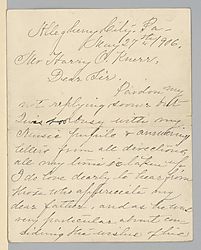 Allegheny City, Pa.
May 27th 1906.
Mr Harry C. Knerr.
Dear Sir.
Pardon my
not replying sooner but
I was too busy with my
Music Pupils & answering
letters from all directions
all my time is taken up
I do love dearly to hear from
those who appreciate my
dear father, and as he was
very particular about